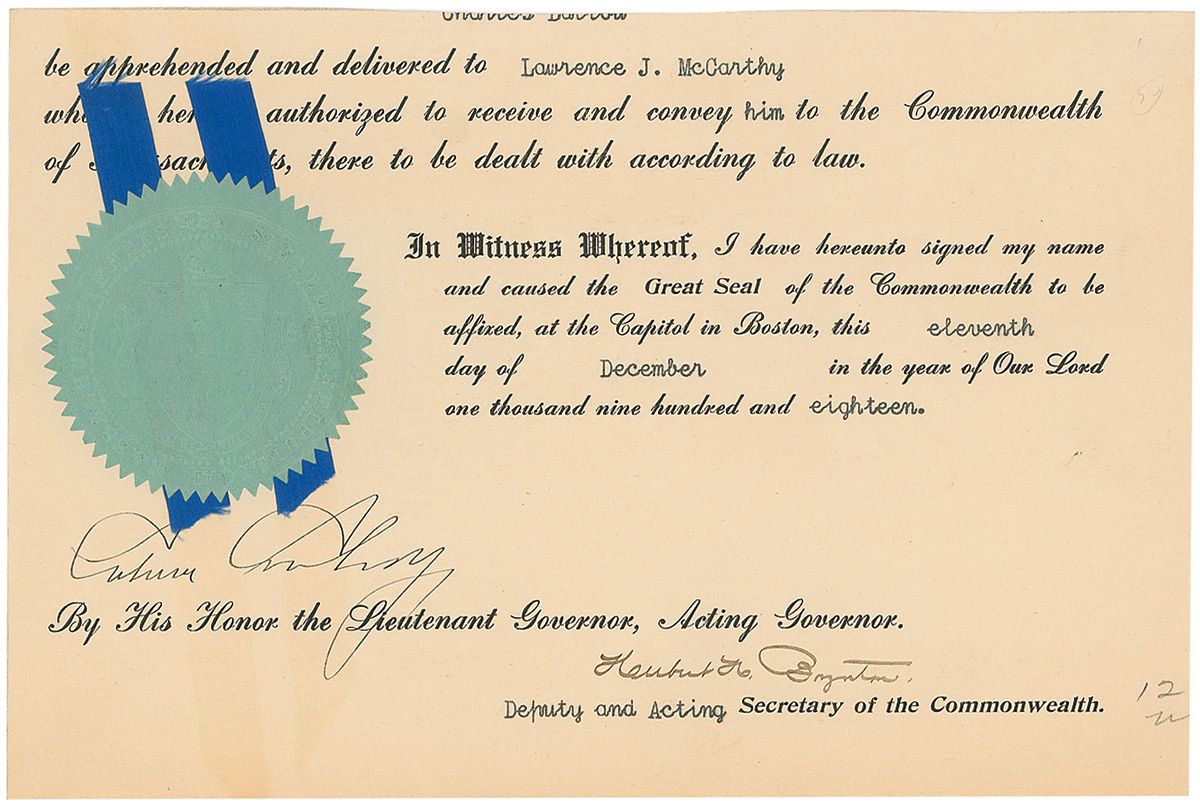 Charles Barlow
be apprehended and delivered to Lawrence J. McCarthy
who her authorized to receive and convey him to the Commonwealth
of sach ts, there to be dealt with according to law.
In Witness Whereof, I have hereunto signed my name
and caused the Great Seal of the Commonwealth to be
affixed, at the Capitol in Boston, this eleventh
day of December in the year of Our Lord
one thousand nine hundred and eighteen.
By His Honor the Lieutenant Governor, Acting Governor.
Herbert H. Boynton.
Deputy and Acting Secretary of the Commonwealth.
12